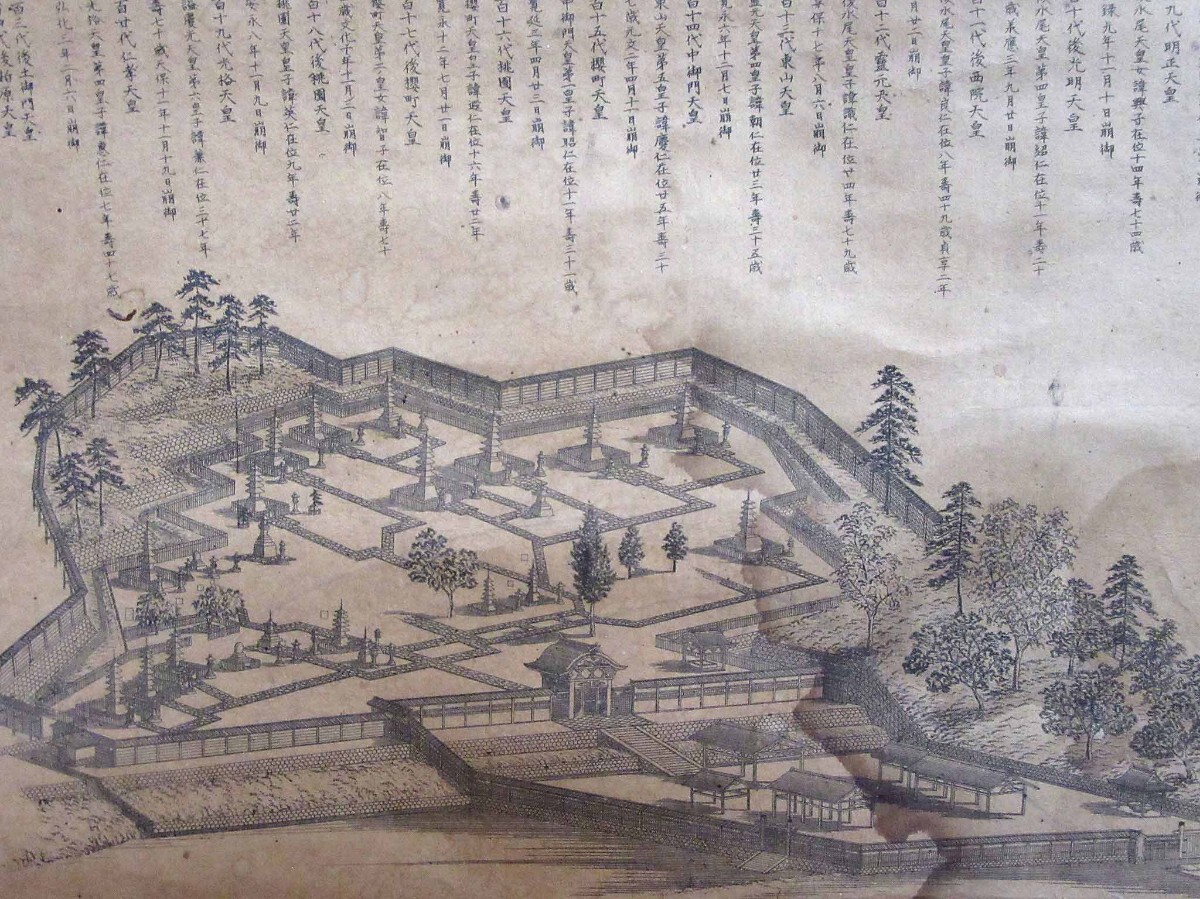 九代明正天皇
水尾天皇女諱興子在位十四年壽七十四歳
九年十一月十日崩御
十代後光明天皇
水尾天皇第四皇子諱紹仁在位十一年壽二十
歳承應三年九月廿日崩御
十一代後西院天皇
水尾天皇皇子諱良仁在位八年壽四十九歳貞享二年
月廿二日崩御
百十二代靈元天皇
後水尾天皇皇子諱識仁在位廿四年壽七十九歳
享保十七年八月六日崩御
百十三代東山天皇
元天皇第四皇子諱朝仁在位廿三年壽三十五歳
永六年十二月七日崩御
百十四代中御門天皇
東山天皇第五皇子諱慶仁在位廿五年壽三十
七歳元文二年四月十一日崩御
百十五代櫻町天皇
中御門天皇第一皇子諱昭仁在位十一年壽三十一歳
寛延三年四月廿三日崩御
百十六代桃園天皇
櫻町天皇皇子諱遐仁在位十六年壽廿二年
永十二年七月廿一日崩御
百十七代後櫻町天皇
櫻町天皇第二皇女諱智子在位八年壽七十
歳文化十年十一月二日崩御
百十八代後桃園天皇
桃園天皇皇子諱英仁在位九年壽廿二年
安永八年十一月九日崩御
百十九代光格天皇
天皇第六皇子諱兼仁在位三十七年
壽七十歳天保十一年十一月十九日崩御
百廿代仁孝天皇
光格天皇第四皇子諱惠仁在位七年壽四十七歳
弘化三年二月六日崩御
三代後土御門天皇
後柏原天皇